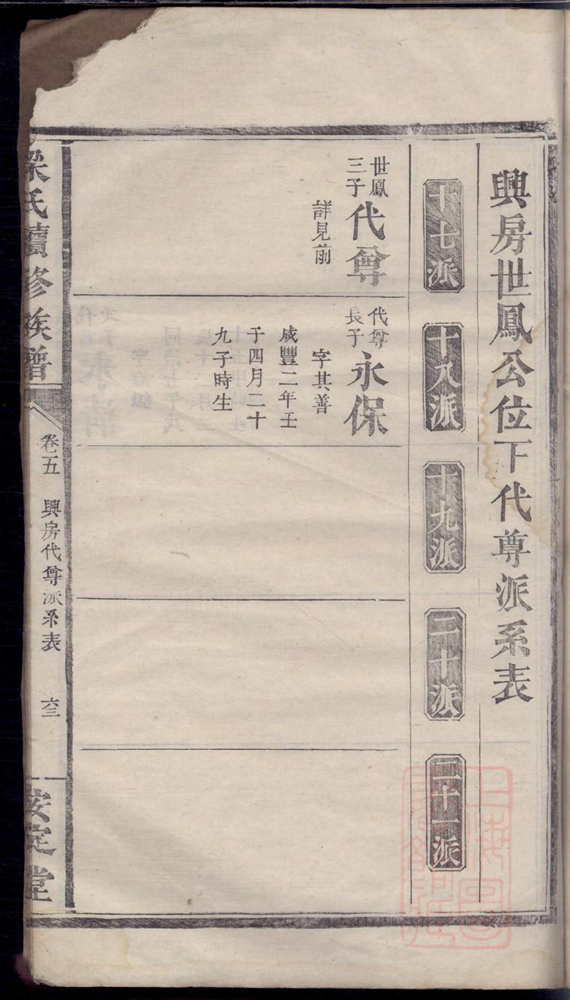 興房世鳳公位下代尊派系表
十七派
十八派
十九派
二十派
二十一派
世鳳
三子
代尊
詳見前
代尊
長子
永保
字其善
咸豐二年壬
子四月二十
九子時生
梁氏續修族譜
卷五
興房代尊派系表
六二
安定堂